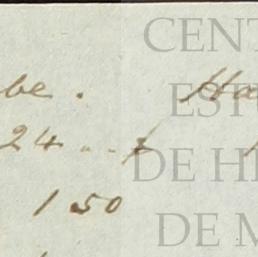 be. Ha
24 .. f
150
CENT
EST
DE HI
DE M